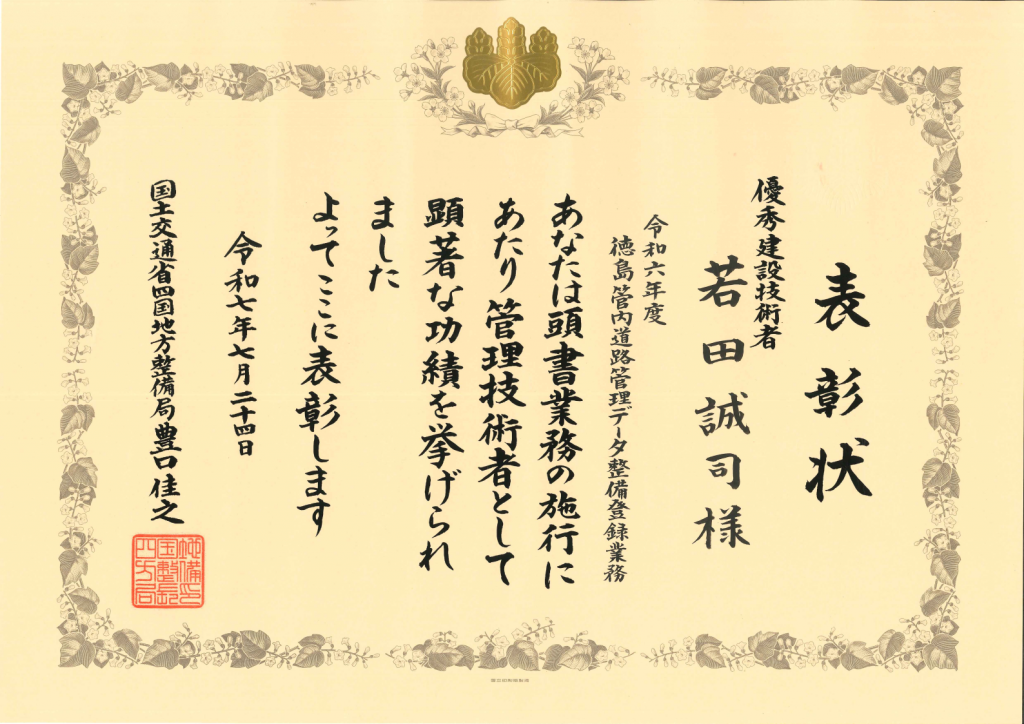 表彰状
優秀建設技術者
若田誠司様
令和六年度
徳島管内道路管理データ整備登録業務
あなたは頭書業務の施行に
あたり管理技術者として
顕著な功績を挙げられ
ました
よってここに表彰します
令和七年七月二十四日
国土交通省四国地方整備局豊口佳之